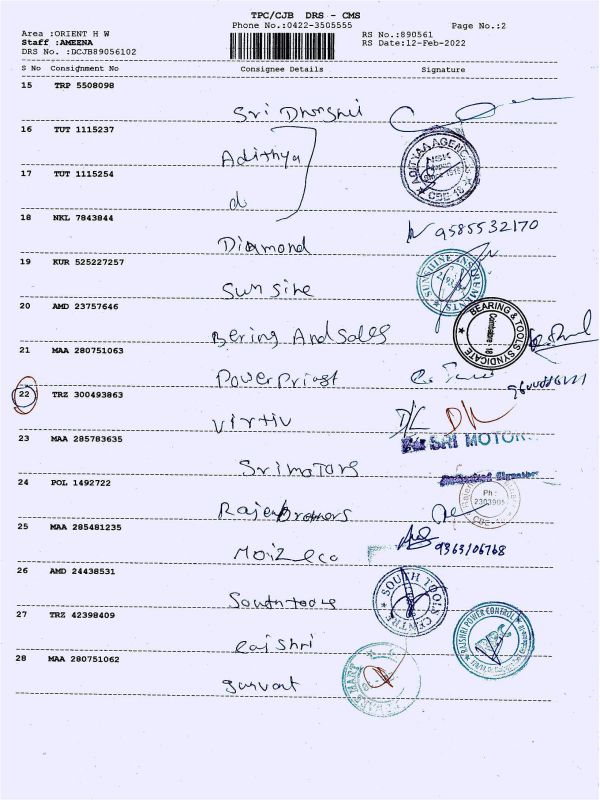 TPC/CJB DRS - CMS
Phone No.:0422-3505555 Page No.:2
Area :ORIENT H W RS No.:890561
Staff :AMEENA RS Date:12-Feb-2022
DRS No. :DCJB89056102
S No Consignment No Consignee Details Signature
15 TRP 5508098
Sri Dharshni
16 TUT 1115237
Adithya
17 TUT 1115254
d
18 NKL 7843844
Diamond 9585532170
19 KUR 525227257
Sun sine
SUNSHINE INSTRUMENTS
20 AMD 23757646
Bering And sales
BEARING & TOOLS SYNDICATE
Coimbatore - 18
21 MAA 280751063
Power Priast
22 TRZ 300493863
Virtiv D/C D/C
23 MAA 285783635
For SRI MOTORS
Sri motors
Authorised Signator
24 POL 1492722
Rajen Brothers
Ph :
2303905
25 MAA 285481235
Moiz eco 9363106768
26 AMD 24438531
South tools
SOUTH TOOLS CENTRE
27 TRZ 42398409
Raj Shri
RAJSHRI POWER CONTROL
28 MAA 280751062
Sarvart